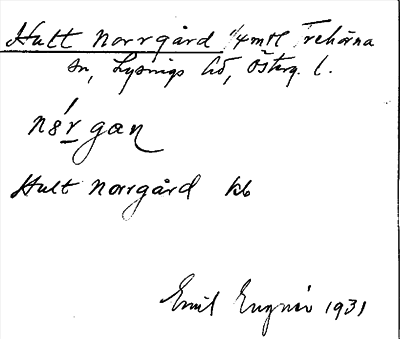 Hult Norrgård 1/4 mtl Trehörna
sn, Lysings hd, Österg. l.
nórgan
Hult Norrgård kb
Emil Engnér 1931